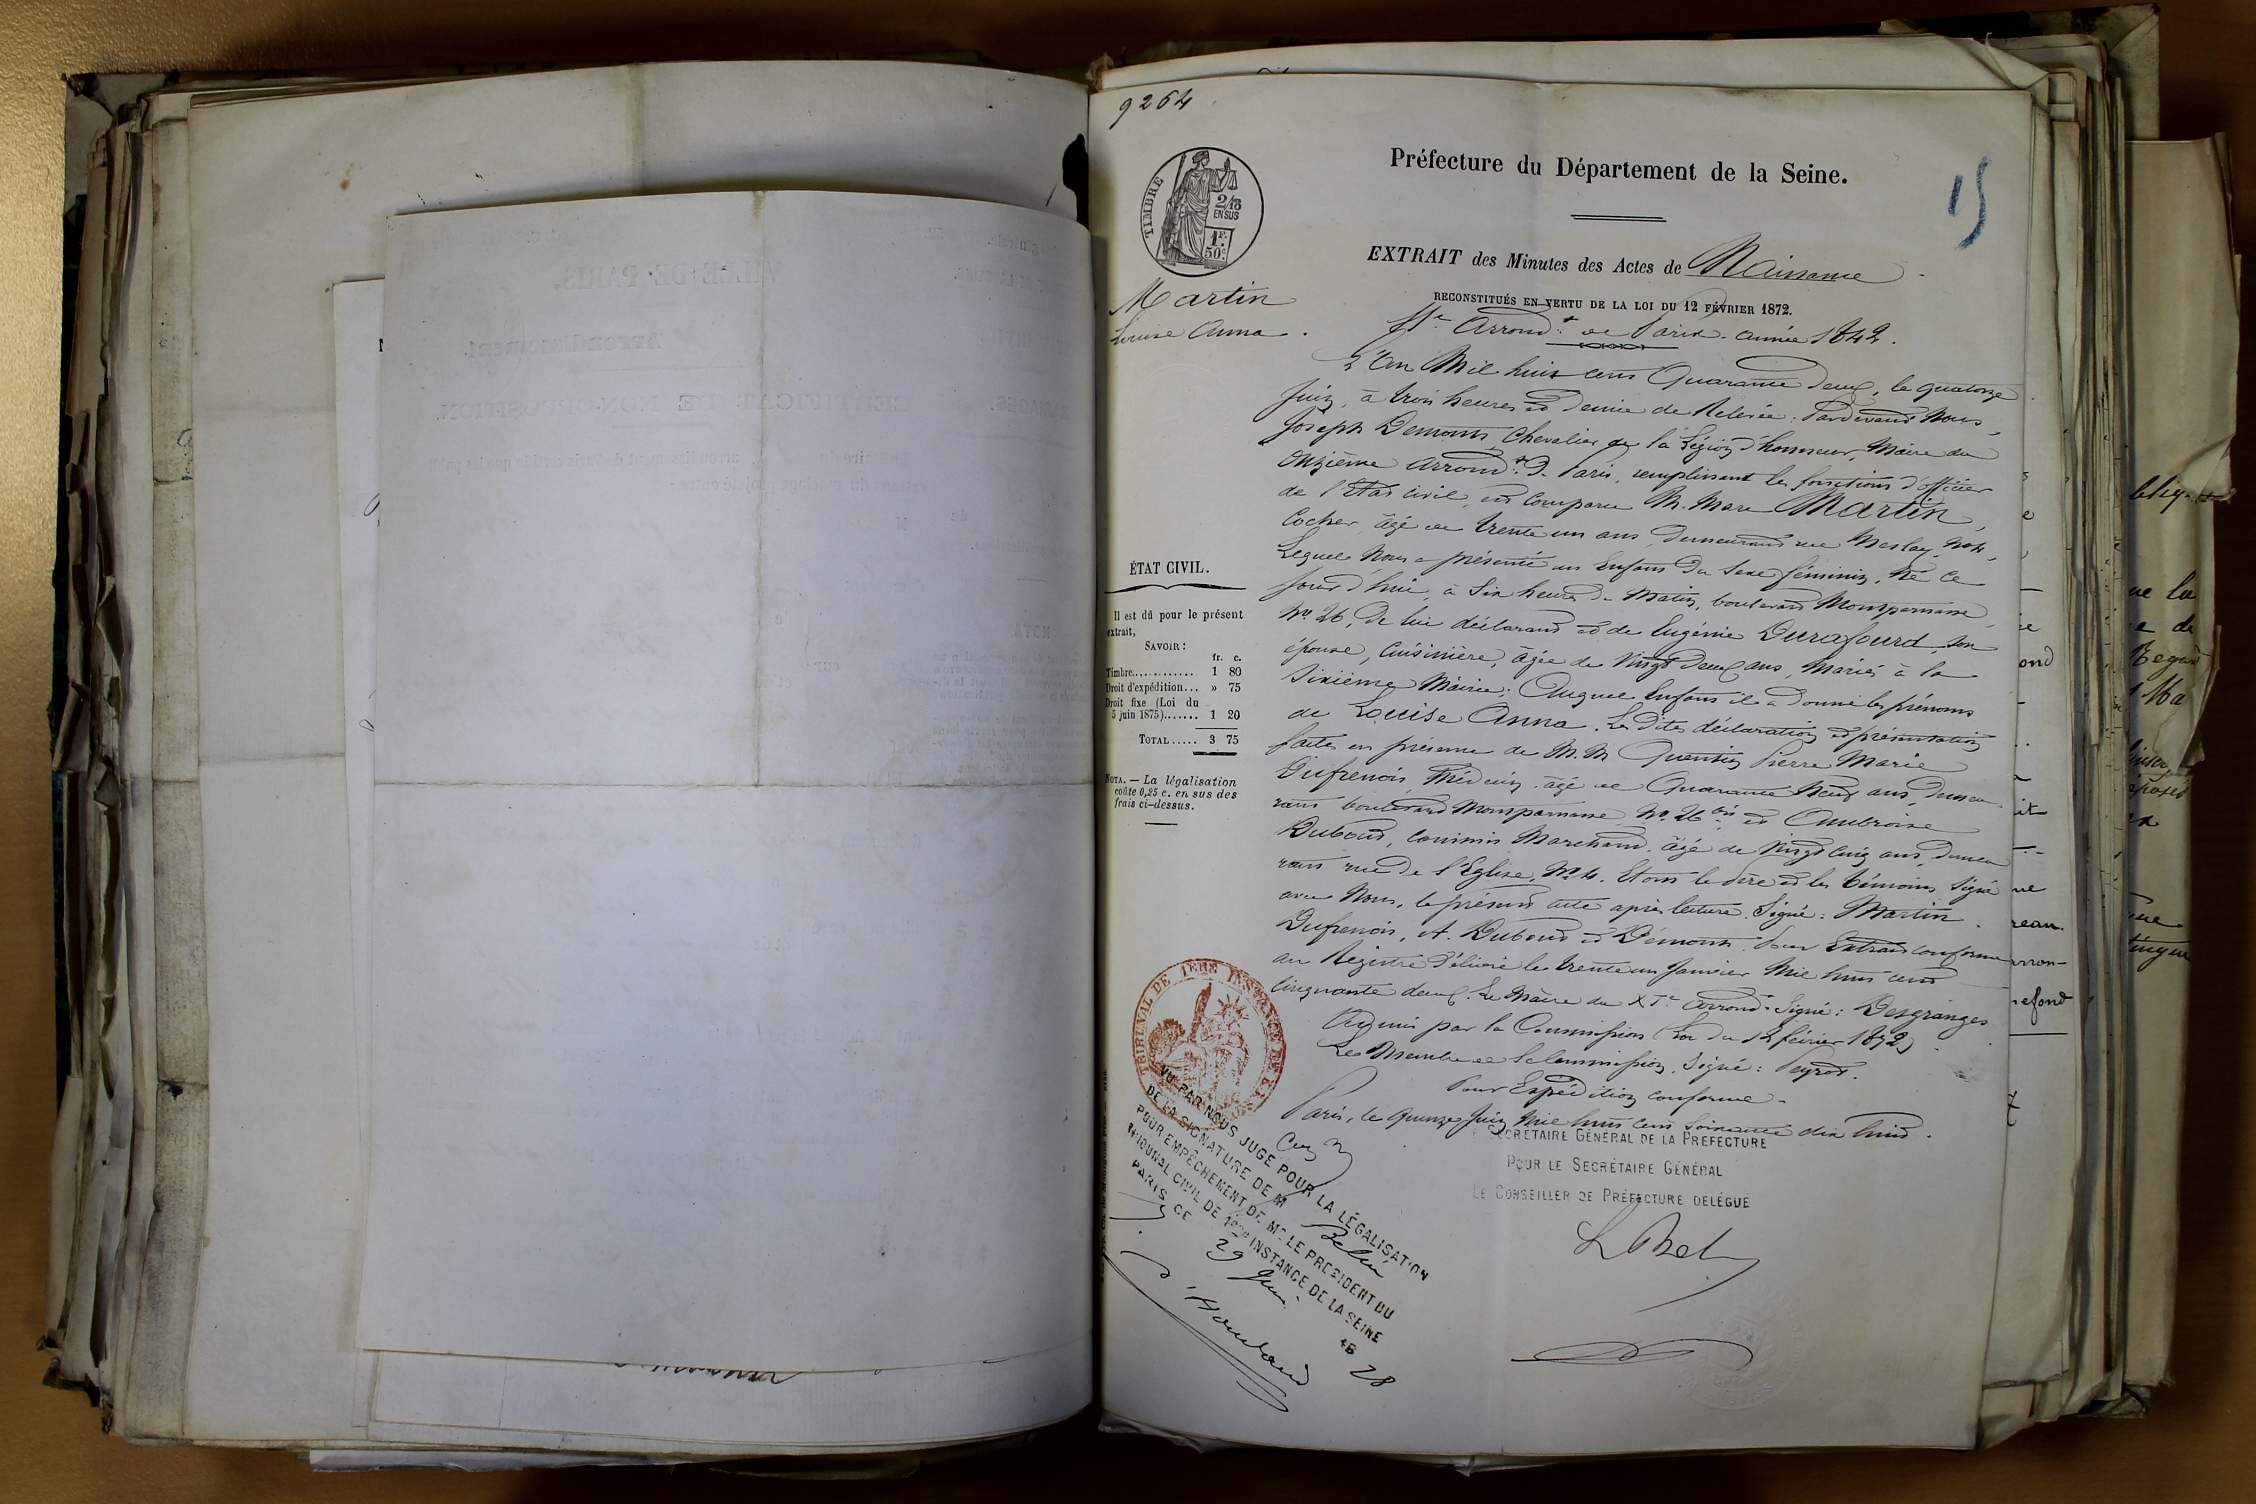 9264
Préfecture du Département de la Seine.
15
TIMBRE
2/10
EN SUS
1F.
50c.
EXTRAIT des Minutes des Actes de Naissance
RECONSTITUÉS EN VERTU DE LA LOI DU 12 FÉVRIER 1872.
Martin
Louise Anna.
11e Arrondt de Paris. année 1842.
L'an Mil huit cent Quarante deux, le quatorze
Juin, à trois heures et demie de Relevée. Pardevant Nous,
Joseph Démonts, Chevalier de la Légion d'honneur, Maire du
Onzième arrondt de Paris, remplissant les fonctions d'officier
de l'état civil, est comparu M. Marc Martin,
Cocher, âgé de trente un ans, demeurant rue Meslay, No 4,
Lequel Nous a présenté un Enfant du Sexe féminin, Né ce
jourd'hui, à Six heures du Matin, boulevard Montparnasse,
No 26, de lui déclarant et de Eugénie Durafourd son
épouse, Cuisinière, âgée de Vingt deux ans, Mariés à la
Sixième Mairie; Auquel Enfant il a donné les prénoms
de Louise Anna. Les dites déclaration et présentation
faites en présence de M.M. Quentin Pierre Marie
Dufrenois, Médecin, âgé de Quarante Neuf ans, demeu-
rant boulevard Montparnasse No 26 bis et Ambroise
Dubout, commis Marchand, âgé de Vingt Cinq ans, demeu
rant rue de l'Eglise, No 4. Et ont le père et les témoins Signé
avec Nous, le présent acte après lecture. Signé: Martin.
Dufrenois, A. Dubout et Démonts. Pour Extrait conforme
au Registre Délivré le trente un Janvier Mil huit cent
Cinquante deux. Le Maire du XIe arrond. Signé: Desgranges
Admis par la Commission (Loi du 12 février 1872)
Le Membre de la Commission. Signé: Peyrot.
Pour Expédition conforme
Paris, le Quinze Juin Mil huit cent soixante dix huit.
ÉTAT CIVIL.
Il est dû pour le présent
extrait,
SAVOIR:
fr. c.
Timbre............ 1 80
Droit d'expédition... » 75
Droit fixe (Loi du
5 juin 1875)...... 1 20
TOTAL..... 3 75
NOTA. — La légalisation
coûte 0,25 c. en sus des
frais ci-dessus.
TRIBUNAL DE 1ERE INSTANCE DE LA SEINE
VU PAR NOUS JUGE POUR LA LÉGALISATION
DE LA SIGNATURE DE M
POUR EMPÊCHEMENT DE MR LE PRESIDENT DU
TRIBUNAL CIVIL DE 1ERE INSTANCE DE LA SEINE
PARIS CE 29 Juin 18 78
SECRÉTAIRE GÉNÉRAL DE LA PRÉFECTURE
POUR LE SECRÉTAIRE GÉNÉRAL
LE CONSEILLER DE PRÉFECTURE DÉLÉGUÉ